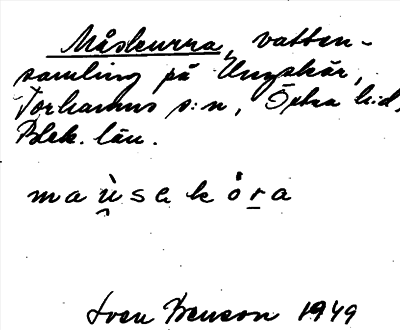 Måskurra, vatten-
samling på Ungskär,
Torhamns s:n, Östra hd,
Blek. län.
maùsakȯra
Sven Benson 1949